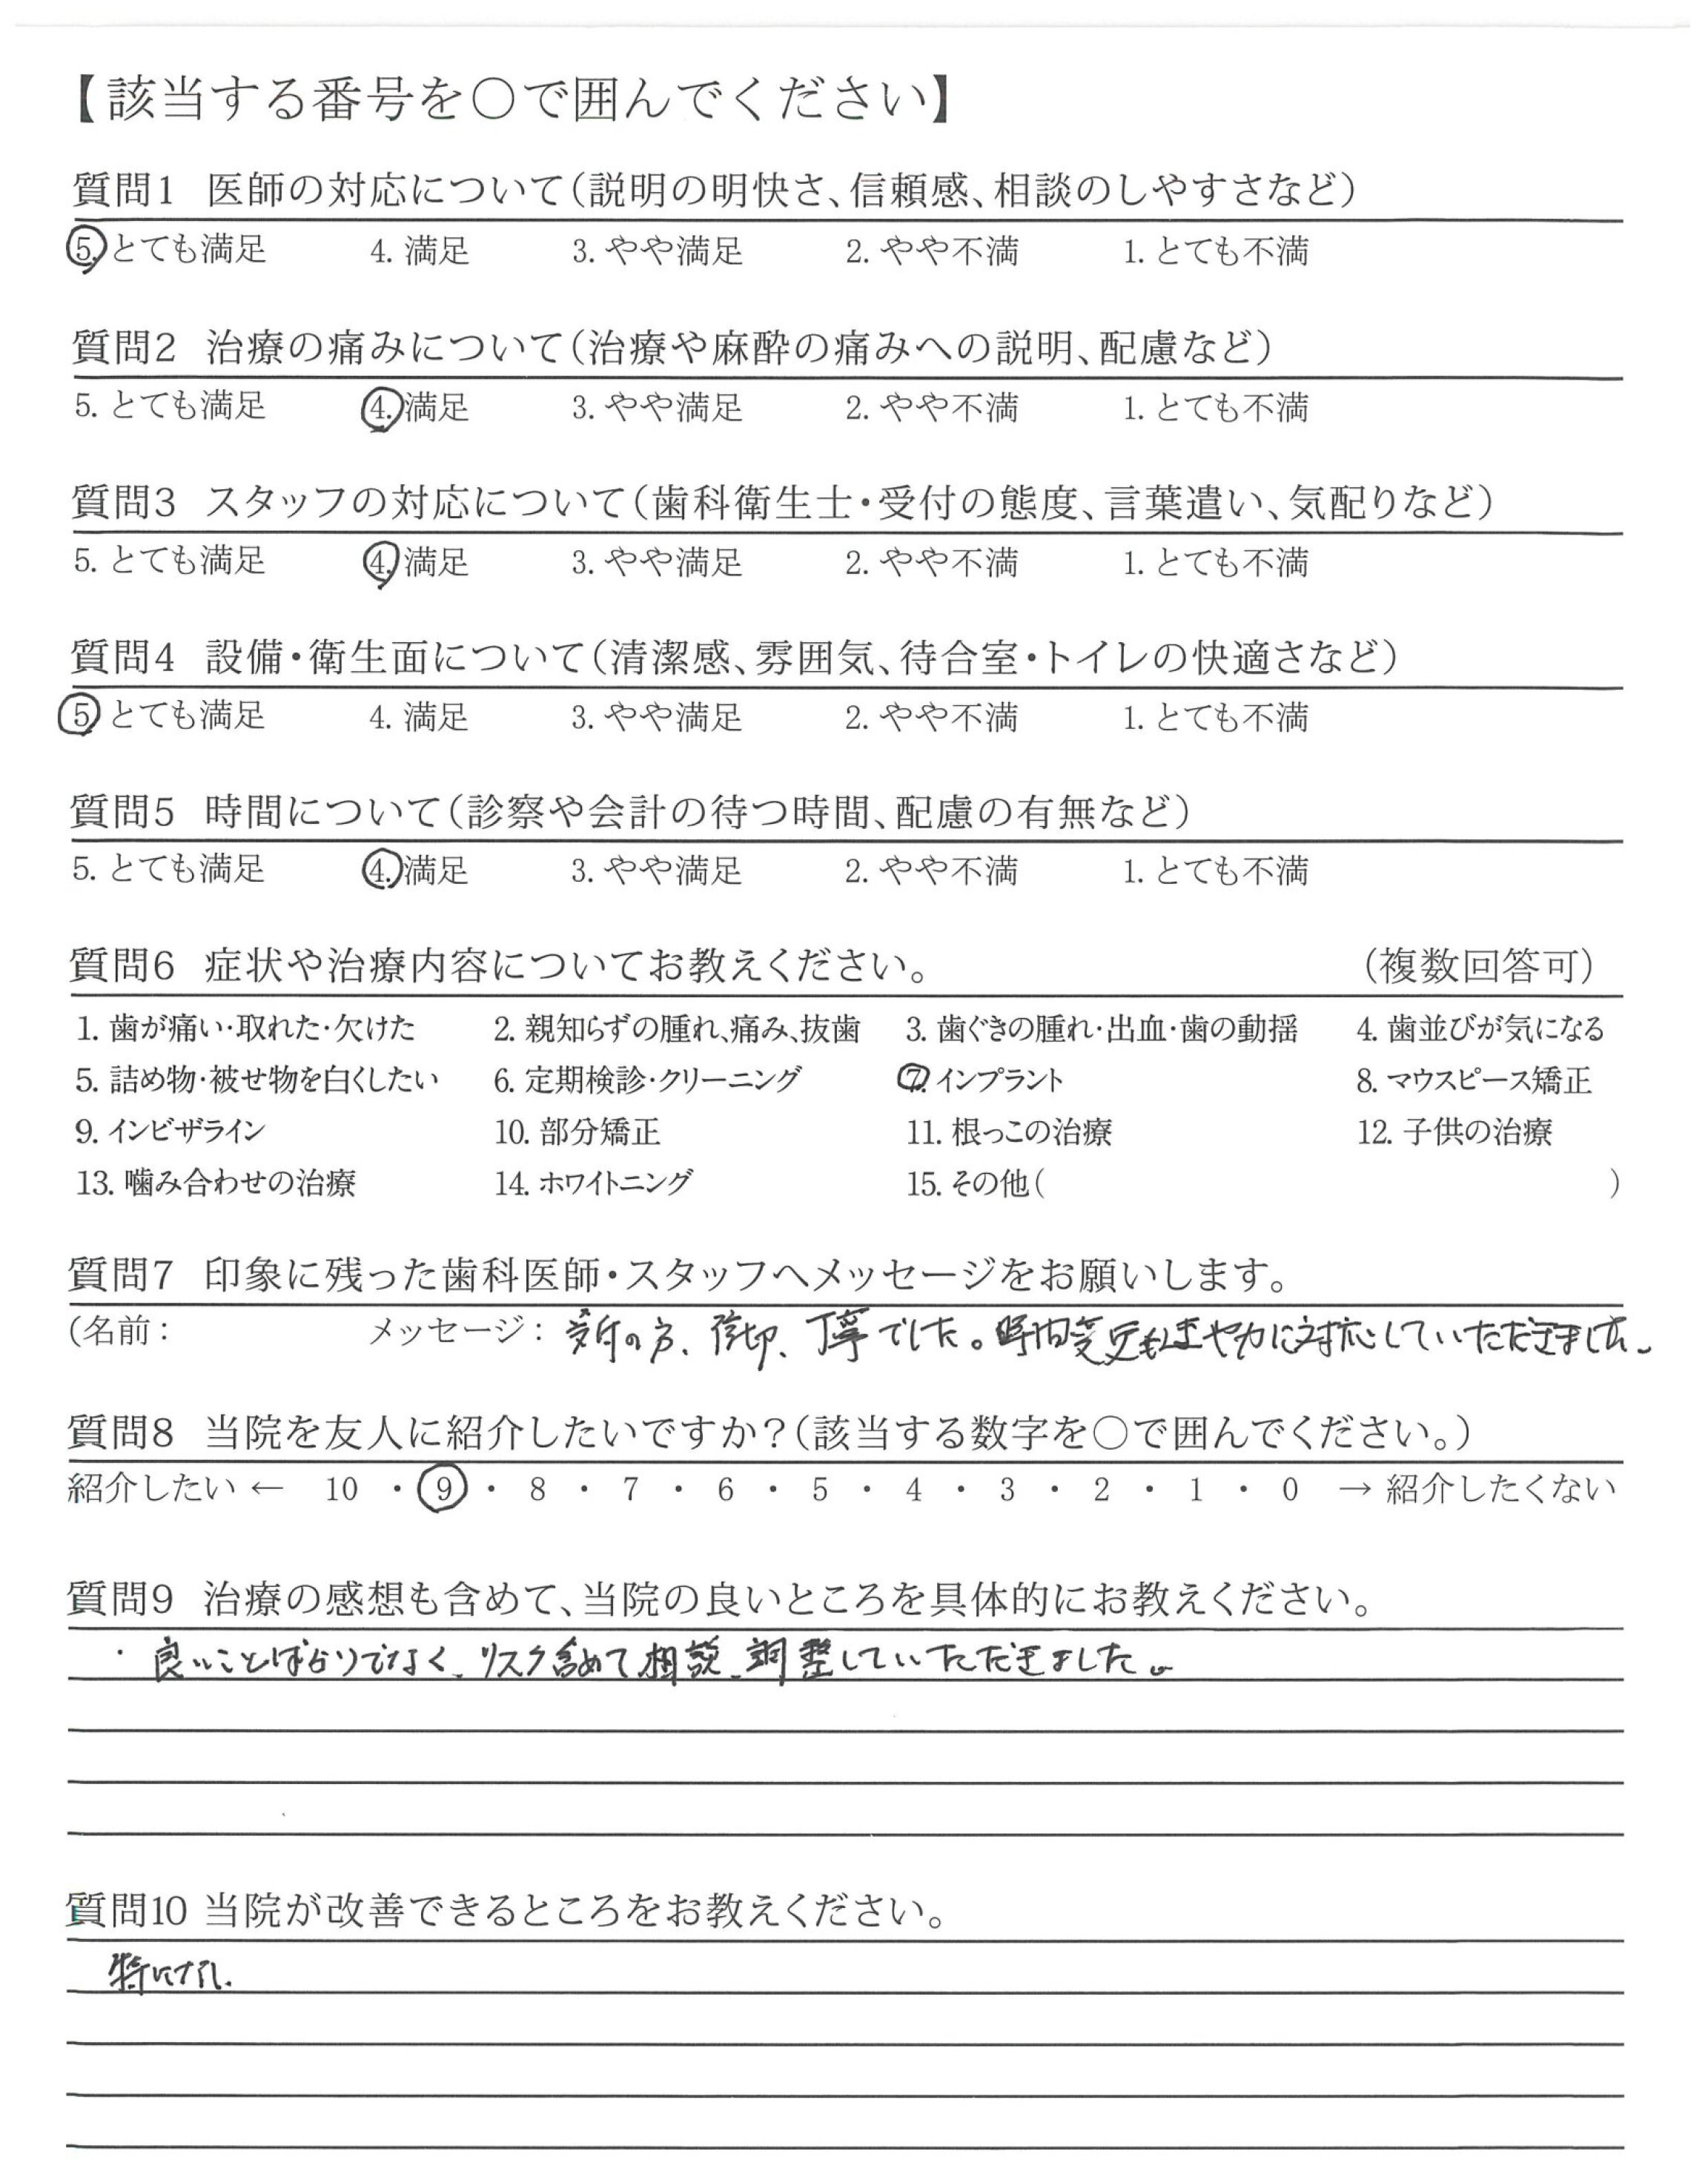 【該当する番号を○で囲んでください】
質問1 医師の対応について(説明の明快さ、信頼感、相談のしやすさなど)
5. とても満足 4. 満足 3. やや満足 2. やや不満 1. とても不満
質問2 治療の痛みについて(治療や麻酔の痛みへの説明、配慮など)
5. とても満足 4. 満足 3. やや満足 2. やや不満 1. とても不満
質問3 スタッフの対応について(歯科衛生士・受付の態度、言葉遣い、気配りなど)
5. とても満足 4. 満足 3. やや満足 2. やや不満 1. とても不満
質問4 設備・衛生面について(清潔感、雰囲気、待合室・トイレの快適さなど)
5. とても満足 4. 満足 3. やや満足 2. やや不満 1. とても不満
質問5 時間について(診察や会計の待つ時間、配慮の有無など)
5. とても満足 4. 満足 3. やや満足 2. やや不満 1. とても不満
質問6 症状や治療内容についてお教えください。 (複数回答可)
1. 歯が痛い・取れた・欠けた 2. 親知らずの腫れ、痛み、抜歯 3. 歯ぐきの腫れ・出血・歯の動揺 4. 歯並びが気になる
5. 詰め物・被せ物を白くしたい 6. 定期検診・クリーニング 7. インプラント 8. マウスピース矯正
9. インビザライン 10. 部分矯正 11. 根っこの治療 12. 子供の治療
13. 噛み合わせの治療 14. ホワイトニング 15. その他( )
質問7 印象に残った歯科医師・スタッフへメッセージをお願いします。
(名前: メッセージ: 受付の方、丁寧でした。時間変更もすみやかに対応していただきました。
質問8 当院を友人に紹介したいですか?(該当する数字を○で囲んでください。)
紹介したい ← 10 ・ 9 ・ 8 ・ 7 ・ 6 ・ 5 ・ 4 ・ 3 ・ 2 ・ 1 ・ 0 → 紹介したくない
質問9 治療の感想も含めて、当院の良いところを具体的にお教えください。
・良いことばかりでなく、リスク含めて相談、調整していただきました。
質問10 当院が改善できるところをお教えください。
特になし.